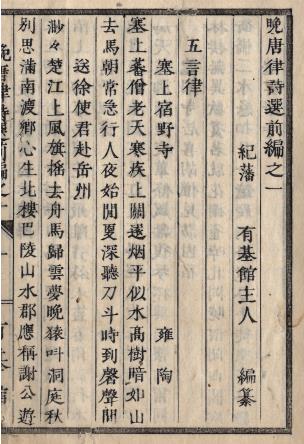 晩唐律詩選前編之一
紀藩 有基館主人 編纂
五言律
塞上宿野寺 雍陶
塞上蕃僧老天寒疾上關遠烟平似水髙樹暗如山
去馬朝常急行人夜始閒夏深聽刀斗時到磬聲間
送徐使君赴岳州
渺々楚江上風旗摇去舟馬歸雲夢晩猿叫洞庭秋
別思滿南渡郷心生北樓巴陵山水郡應稱謝公遊